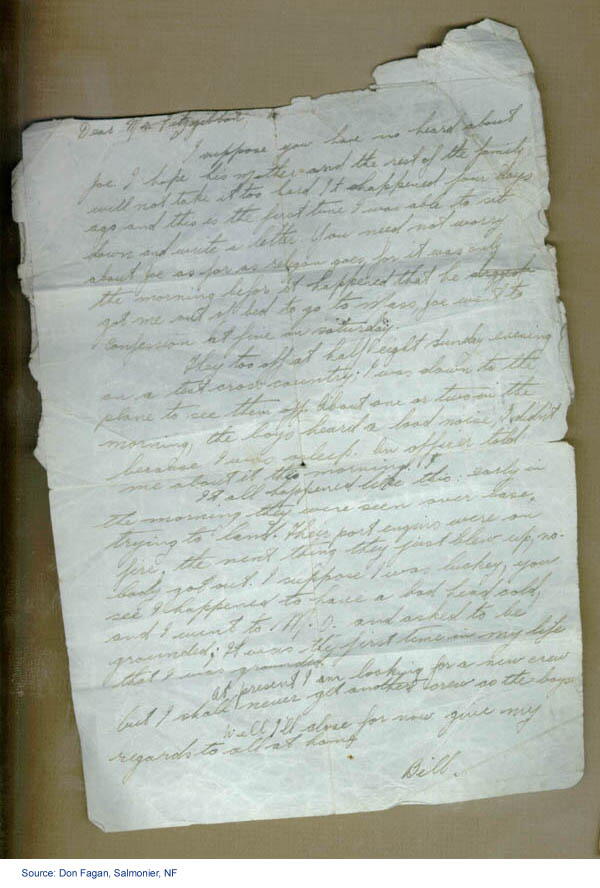 Dear Mr. Fitzgibbon
I suppose you have no heard about
Joe. I hope his mother and the rest of the family
will not take it too hard. It happened four days
ago and this is the first time I was able to sit
down and write a letter. You need not worry
about Joe as for as religon goes, for it was only
the morning befor it happened that he
got me out of bed to go to Mass, Joe went to
Confession at five on saturday.
They too off at half eight Sunday evening
on a test cross-country; I was down to the
plane to see them off. About one or two in the
morning, the boys heard a load noise; I didn't
because I was asleep. An officer told
me about it this morning.
It all happened like this: early in
the morning they were seen over base,
trying to land. Their port engins were on
fire, the next thing they just blew up, no-
body got out. I suppose I was luckey, you
see I happened to have a bad head cold,
and I went to M.O. and asked to be
grounded; It was the first time in my life
that I was grounded.
At present I am looking for a new crew
but I shall never get another crew as the boys
Well I'll close for now give my
regards to all at home
Bill.
Source: Don Fagan, Salmonier, NF